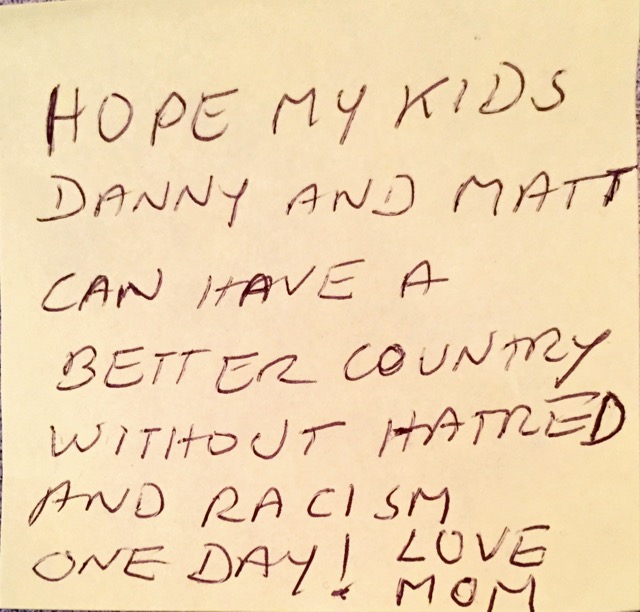 HOPE MY KIDS
DANNY AND MATT
CAN HAVE A
BETTER COUNTRY
WITHOUT HATRED
AND RACISM
ONE DAY! LOVE
MOM